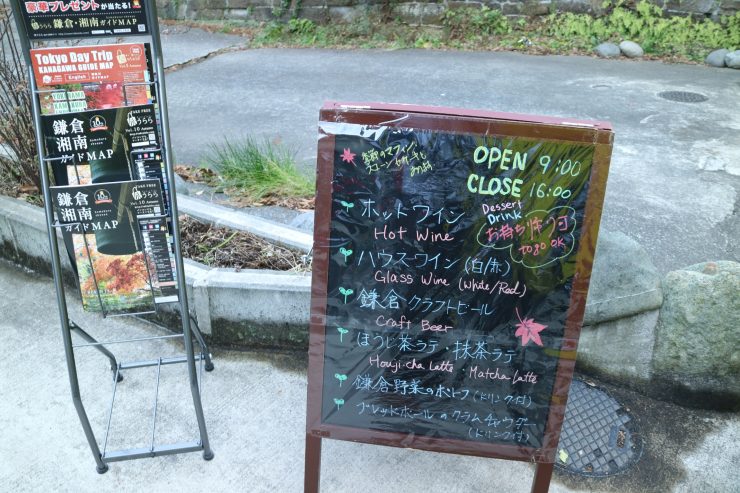 豪華プレゼントが当たる!
鎌倉・湘南ガイドMAP
Tokyo Day Trip
KANAGAWA GUIDE MAP
English
YOKOHAMA
KAMAKURA
鎌倉
湘南
ガイドMAP
TAKE FREE
Vol.10 Autumn
うらら
鎌倉
湘南
ガイドMAP
TAKE FREE
Vol.10 Autumn
うらら
OPEN 9:00
CLOSE 16:00
Dessert
Drink
お持ち帰り可
to go OK
ホットワイン
Hot Wine
ハウスワイン(白/赤)
Glass Wine (White/Red)
鎌倉クラフトビール
Craft Beer
ほうじ茶ラテ・抹茶ラテ
Houji cha Latte・Matcha Latte
鎌倉野菜のポトフ(ドリンク付)
ブレッドボールのクラムチャウダー
(ドリンク付)